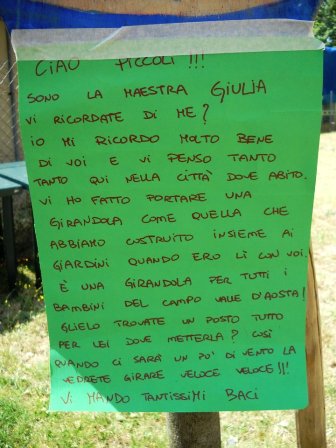 CIAO PICCOLI !!!
SONO LA MAESTRA GIULIA
VI RICORDATE DI ME?
IO MI RICORDO MOLTO BENE
DI VOI E VI PENSO TANTO
TANTO QUI NELLA CITTÀ DOVE ABITO.
VI HO FATTO PORTARE UNA
GIRANDOLA COME QUELLA CHE
ABBIAMO COSTRUITO INSIEME AI
GIARDINI QUANDO ERO LÌ CON VOI.
È UNA GIRANDOLA PER TUTTI I
BAMBINI DEL CAMPO VALLE D'AOSTA!
GLIELO TROVATE UN POSTO TUTTO
PER LEI DOVE METTERLA? COSÌ
QUANDO CI SARÀ UN PO' DI VENTO LA
VEDRETE GIRARE VELOCE VELOCE!!!
VI MANDO TANTISSIMI BACI